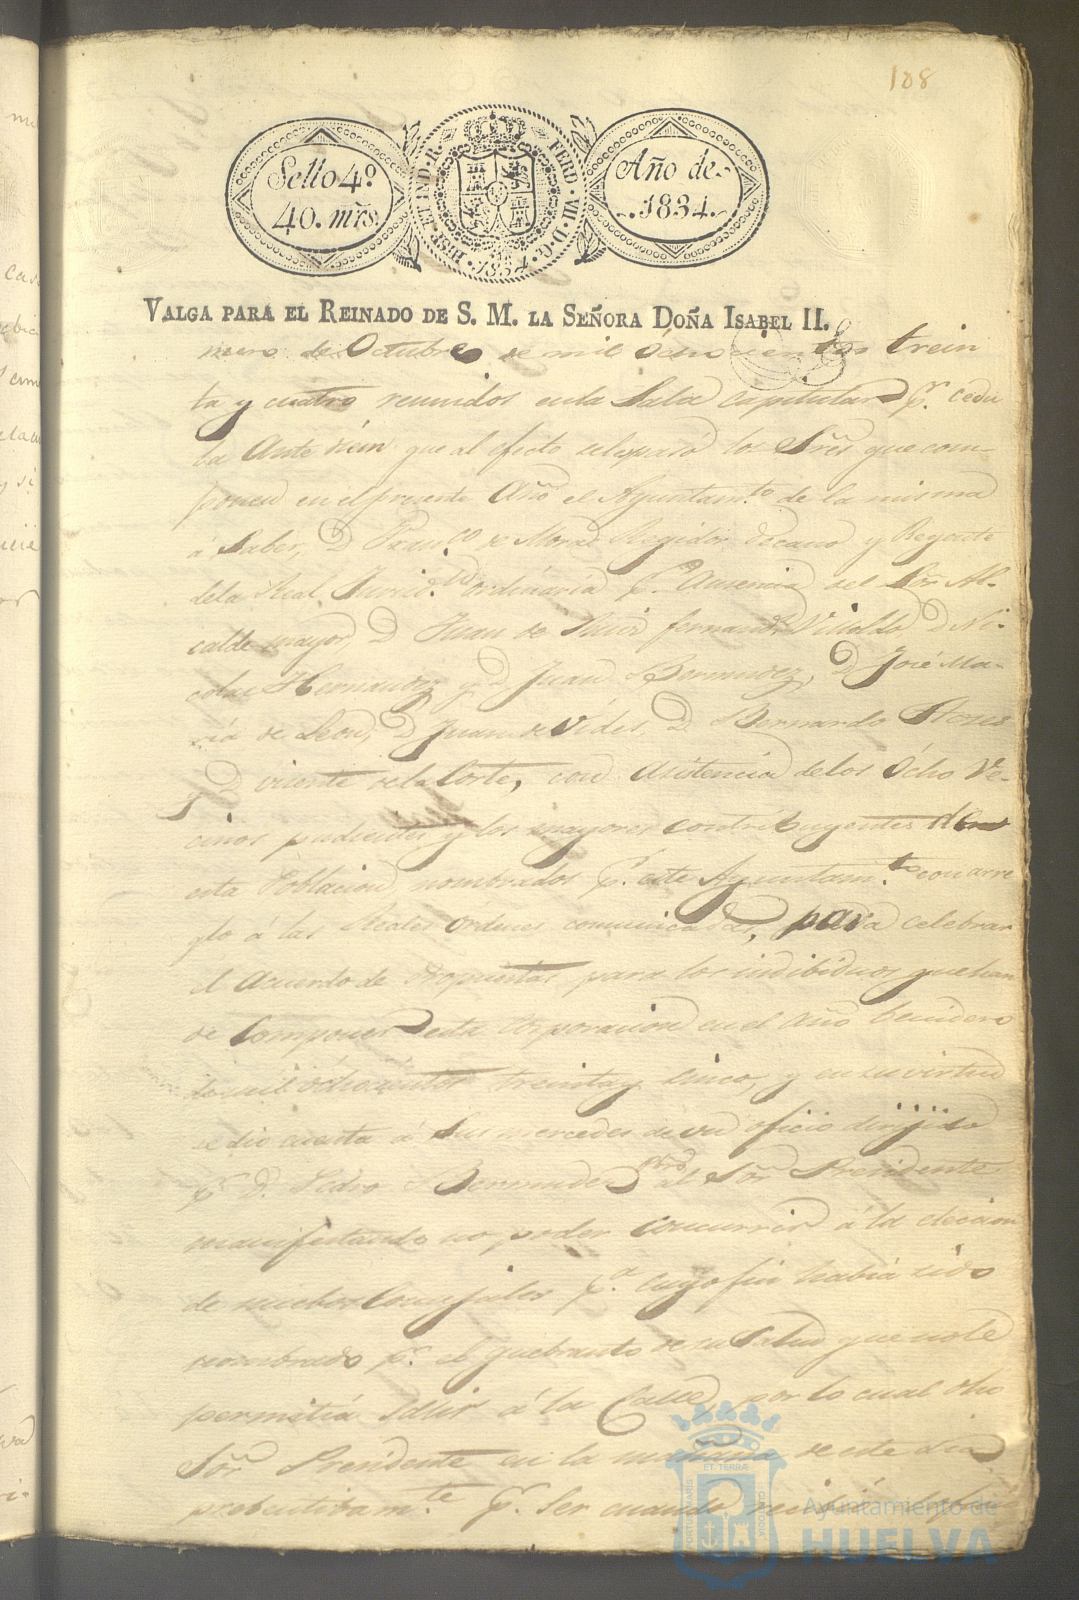 108
Sello 4º
40. mrs.
HISP. ET IND. R.
FERD. VII. D. G.
1834.
Año de
1834.
VALGA PARA EL REINADO DE S. M. LA SEÑORA DOÑA ISABEL II.
mero de Octubre de mil ochocientos trein
ta y cuatro reunidos en la Sala Capitular pr. cedu
la Ante diem que al efecto se les pasó los Sres que com-
ponen en el presente Año el Ayuntamto de la misma
á Saber, D Franco de Mora Regidor decano y Regente
dela Real Jurisdn ordinaria pr. ausencia del Sor Al-
calde mayor, D Juan de fernando D Ni-
colas Hernandez y D Juan Bermudez, D José Ma-
ría de Leon, D Juan de Vides, D Bernardo
y D vicente dela Corte, con asistencia delos Ocho Ve-
cinos pudientes y los mayores contribuyentes de
esta Poblacion nombrados pr. este Ayuntamto con arre
glo á las Reales Ordenes comunicadas, para celebrar
el Acuerdo de Propuestas para los individuos que han
de Componer esta Corporacion en el Año benidero
de mil ochocientos treinta y cinco, y en su virtud
se dio cuenta á Sus mercedes de un oficio dirijido
pr D. Pedro Bermudez pbro al Sor Presidente
manifestando no poder concurrir á la eleccion
de nuebos Concejales pa. cuyo fin habia sido
nombrado pr. el quebranto de su Salud que no le
permitia Salir á la Calle, por lo cual dho
Sor Presidente en la mañana de este dia
probentibamte pr. Ser cuando recibió el ofi
PORTUS MARIS
ET TERRAE
CUSTODIA
Ayuntamiento de
HUELVA